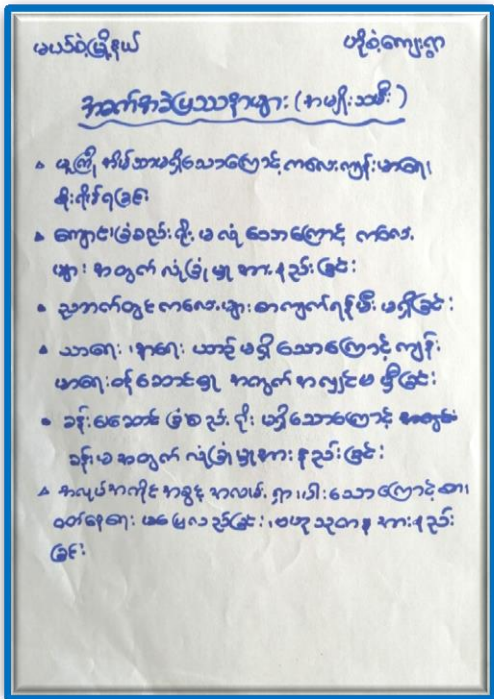 မပယ်ဝဲမြို့နယ် ဟိုစံကျေးရွာ
အခက်အခဲပြဿနာများ (အမျိုးသမီး)
▲ မူကြို အိမ်သာမရှိသောကြောင့် ကလေးကျန်းမာရေး
စိုးရိမ်ရခြင်း
▲ ကျောင်းခြံစည်းရိုး မလုံသောကြောင့် ကလေး
များ အတွက် လုံခြုံမှုအားနည်းခြင်း
• ညဘက်တွင်ကလေးများစာကျက်ရန်မီး မရှိခြင်း
▲ သာရေး၊ နာရေး ယာဉ်မရှိသောကြောင့်ကျန်း
မာရေးစောင့်ရှောက်မှု အတွက် အလှူင်းမရှိခြင်း
• ခန်းမဆောင် ခြံစည်းရိုး မရှိသောကြောင့်
ခန်းမအတွက် လုံခြုံမှုအားနည်းခြင်း
▲ အလုပ်အကိုင်အခွင့်အလမ်း ရှားပါးသောကြောင့်စား
ဝတ်နေရေး မပြေလည်ခြင်း၊ ဗဟုသုတအားနည်း
ခြင်း